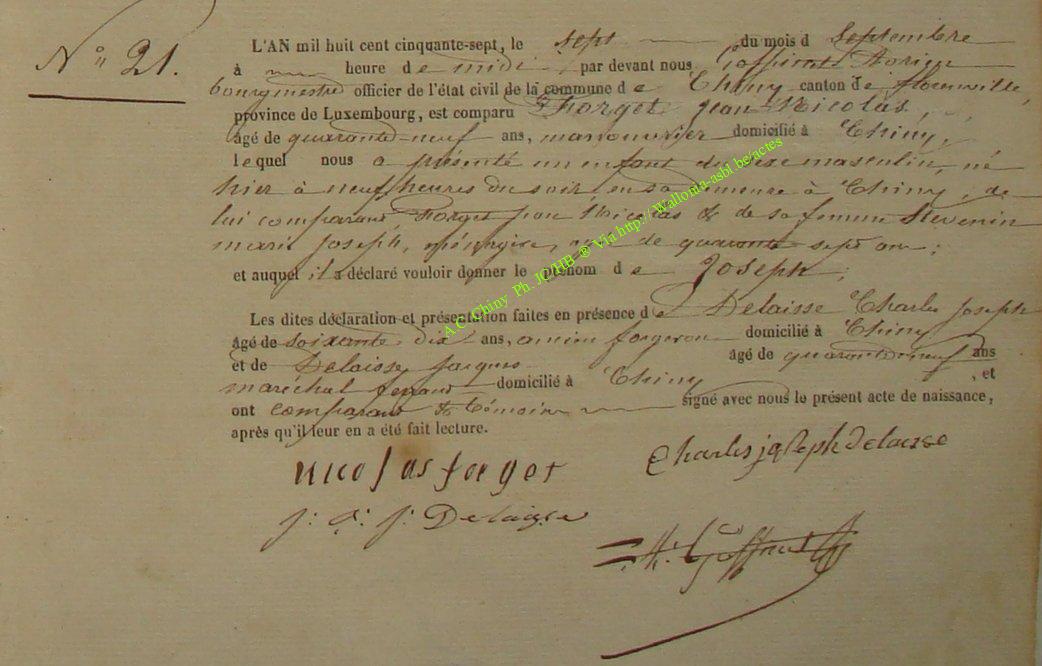 N° 21.
L'AN mil huit cent cinquante-sept, le sept du mois d Septembre
à heure de midi par devant nous Adrien
bourgmestre officier de l'état civil de la commune de Chiny canton de florenville,
province de Luxembourg, est comparu Forget jean Nicolas,
âgé de quarante neuf ans, manouvrier domicilié à Chiny,
lequel nous a présenté un enfant du sexe masculin, né
hier à neuf heures du soir, en sa demeure à Chiny, de
lui comparant Forget jean Nicolas & de sa femme Stevenin
marie joseph, ménagère, agée de quarante sept ans;
et auquel il a déclaré vouloir donner le prénom de Joseph;
Les dites déclaration et présentation faites en présence de Delaisse Charles joseph
âgé de soixante dix ans, ancien forgeron domicilié à Chiny
et de Delaisse jacques âgé de quarante neuf ans
maréchal ferrant domicilié à Chiny, et
ont comparant & témoins signé avec nous le présent acte de naissance,
après qu'il leur en a été fait lecture.
nicolas forget
Charles joseph Delaisse
j. j. Delaisse
A.C. Chiny Ph. JC HB ® Via http://Wallonia-asbl.be/actes